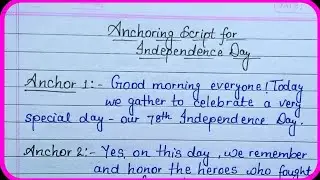 Anchoring Script for
Independence Day
Anchor 1:- Good morning everyone! Today
we gather to celebrate a very
special day - our 78th Independence Day.
Anchor 2:- Yes, on this day, we remember
and honor the heroes who fought